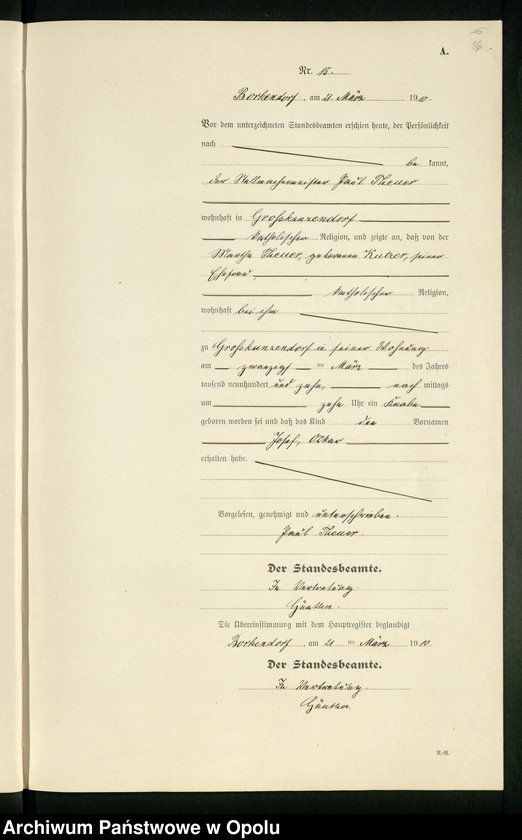 16.
A.
Nr. 15.
Borkendorf, am 21. März 1910.
Vor dem unterzeichneten Standesbeamten erschien heute, der Persönlichkeit
nach be kannt,
der Stellmachermeister Paul Theuer
wohnhaft in Großkunzendorf
katholischer Religion, und zeigte an, daß von der
Martha Theuer, geborenen Kutzer, seiner
Ehefrau,
katholischer Religion,
wohnhaft bei ihm
zu Großkunzendorf in seiner Wohnung
am zwanzigsten März des Jahres
tausend neunhundert und zehn, nach mittags
um zehn Uhr ein Knabe
geboren worden sei und daß das Kind den Vornamen
Josef, Oskar
erhalten habe.
Vorgelesen, genehmigt und unterschrieben.
Paul Theuer.
Der Standesbeamte.
In Vertretung.
Günther.
Die Übereinstimmung mit dem Hauptregister beglaubigt
Borkendorf, am 21 ten März 1910.
Der Standesbeamte.
In Vertretung.
Günther
Archiwum Państwowe w Opolu